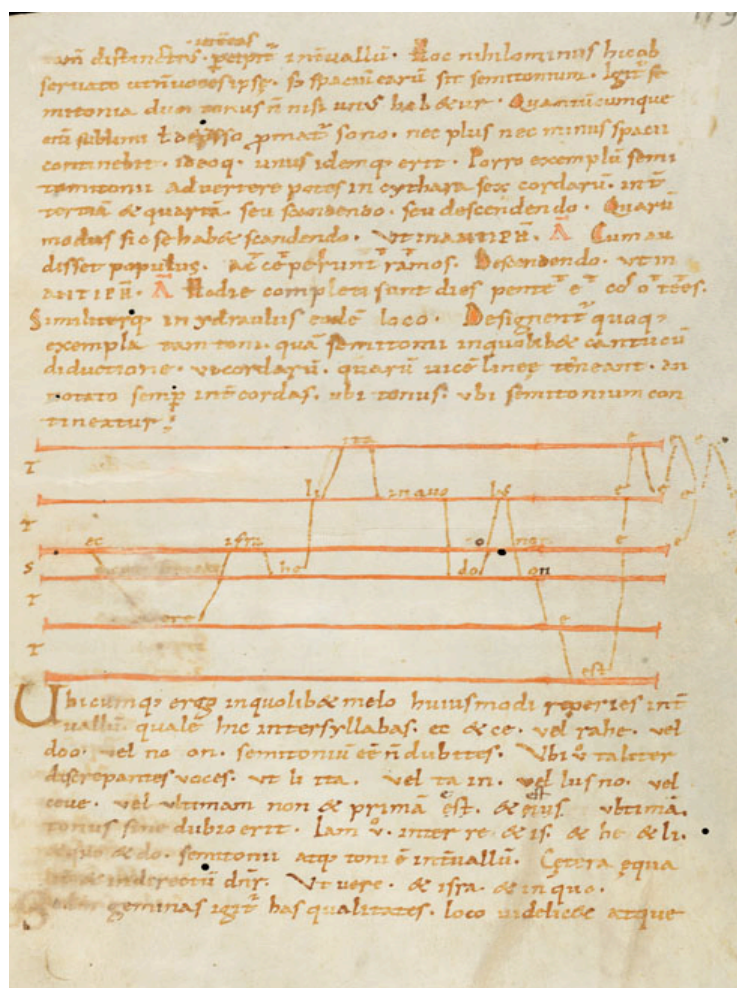 119
tam distinctus. voces
percipit intervallū. Hoc nihilominus hic ob
servato ut n̄ voces ipsę. sꝫ spaciū earū sit semitonium. Igit᷑ se
mitonia duo tonus n̄ nisi unus hab&ur. Quantūcumque
etiā sublimi ł depresso ꝓmat᷑ sono. nec plus nec minus spacii
continebit. ideoq. unus idemq; erit. Porro exemplū semi
tonii advertere potes in cythara sex cordarū. int̄
tertiā & quartā. seu scandendo. seu descendendo. Quarū
modus sic se hab& scandendo. Ut in ANTIPH̄. Ā Cum au
disset populus. ac̄ cēperunt̄ rāmos. Descendendo. ut in
ANTIPH̄. Ā Hodie completi sunt dies pente᷑ e᷑ co᷑ o᷑ tēes.
Similiterq; in ydraulis eodē loco. Designent᷑ quoq;
exempla tam toni. quā semitonii in quolib& cantucū
diductione. ut cordarū. quarū vicē lineę teneant.
notato semp̱ int̄ cordas. ubi tonus. ubi semitonium con
tineatur;
ita e e e
T
li in quo lus e e e
T
ec isra o no e e
S
he do on
T
ere e
T
est
Ubicumq; ergo in quolib& melo huiusmodi reperies int̄
vallū. qualē hic inter syllabas. ec & ce. vel rahe. vel
doo. vel no on. semitoniū eē n̄ dubites. Ubi v̊ taliter
discrepantes voces. ut li tta. vel ta in. vel lus no. vel
ceue. vel ultimam non & primā est. & eius ultimā.
tonus sine dubio erit. Iam v̊. inter re & is. & he & li.
& quo & do. semitonii atq; toni ē int̄vallū. Cętera ęqua
& in directū dn̄r. Ut vere. & isra. & in quo.
geminas igit᷑ has qualitates. loco videlic& atque